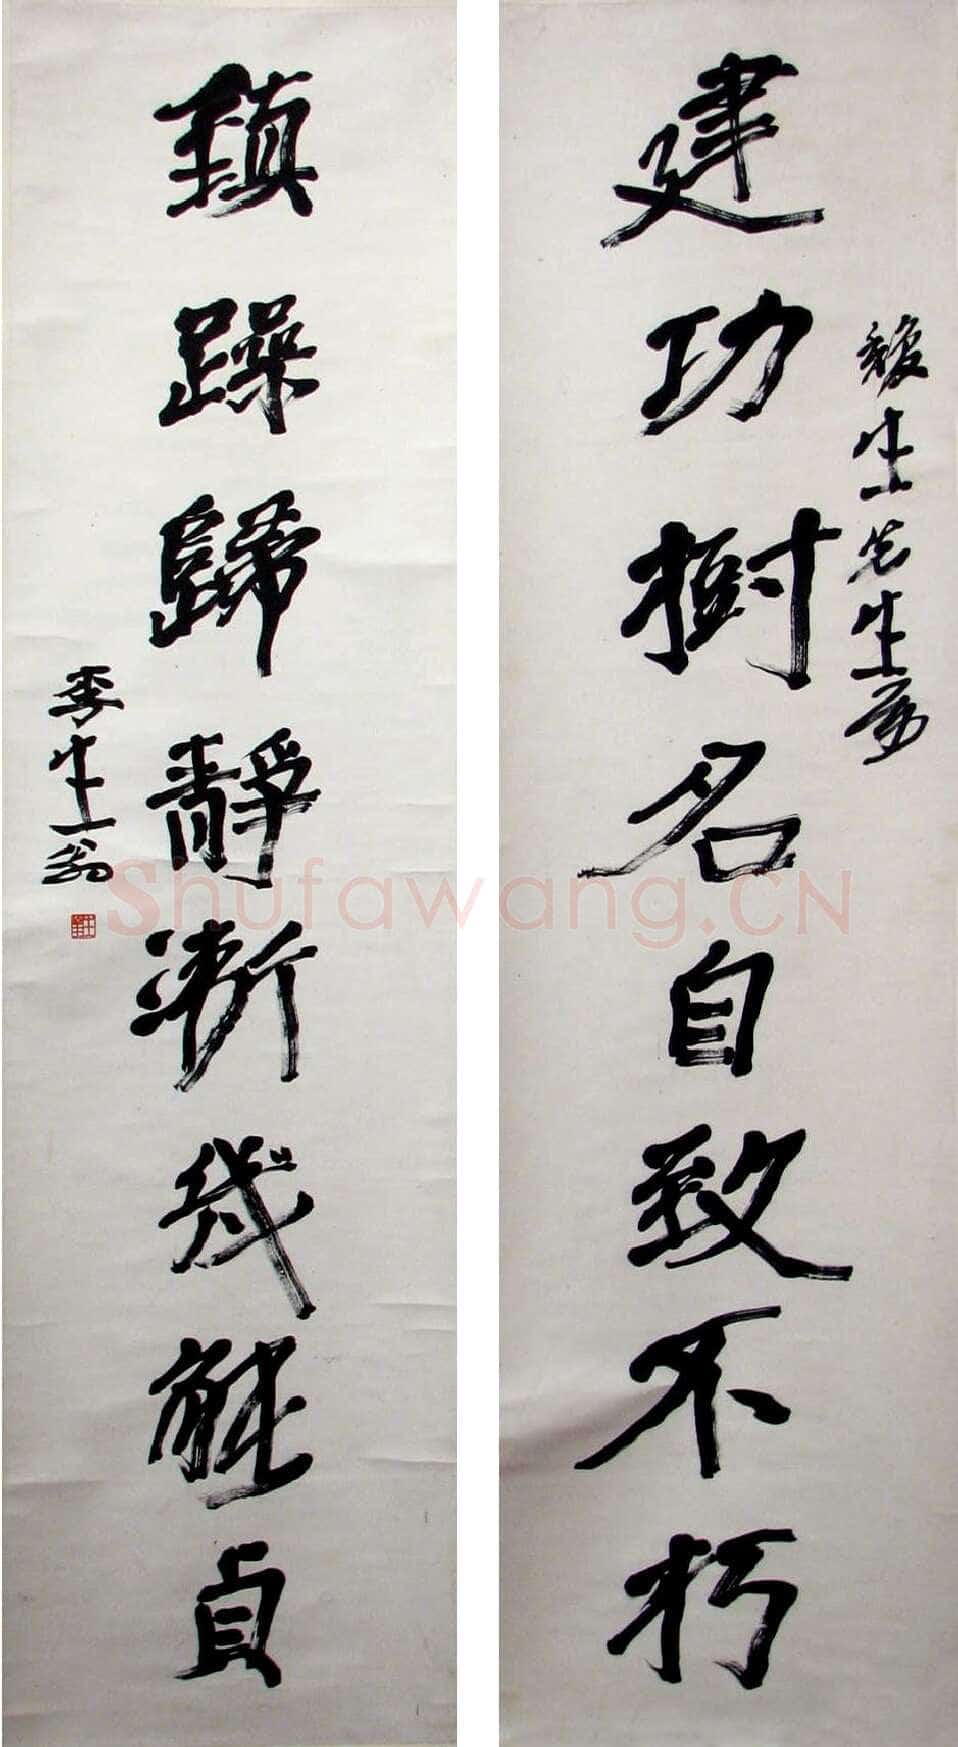 建功樹名自致不朽
生先生屬
鎮躁歸靜漸幾能貞
李生翁
Shufawang.CN